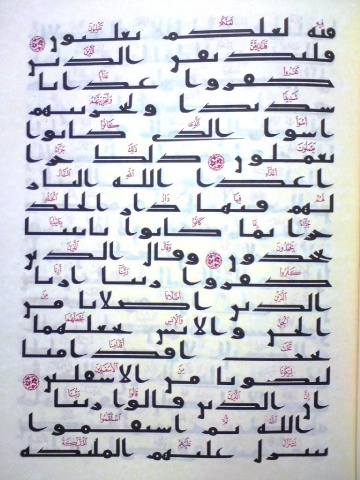 فيه لعلكم تغلبون
فلنذيقن الذين
كفروا عذابا
شديدا ولنجزينهم
اسوا الذي كانوا
يعملون ذلك جزا
اعدا الله النار
لهم فيها دار الخلد
جزا بما كانوا باىتنا
يجحدون وقال الذين
كفروا ربنا ارنا
الذين اضلانا من
الجن والانس نجعلهما
تحت اقدامنا
ليكونا من الاسفلين
ان الذين قالوا ربنا
الله ثم استقموا
تتنزل عليهم الملئكه